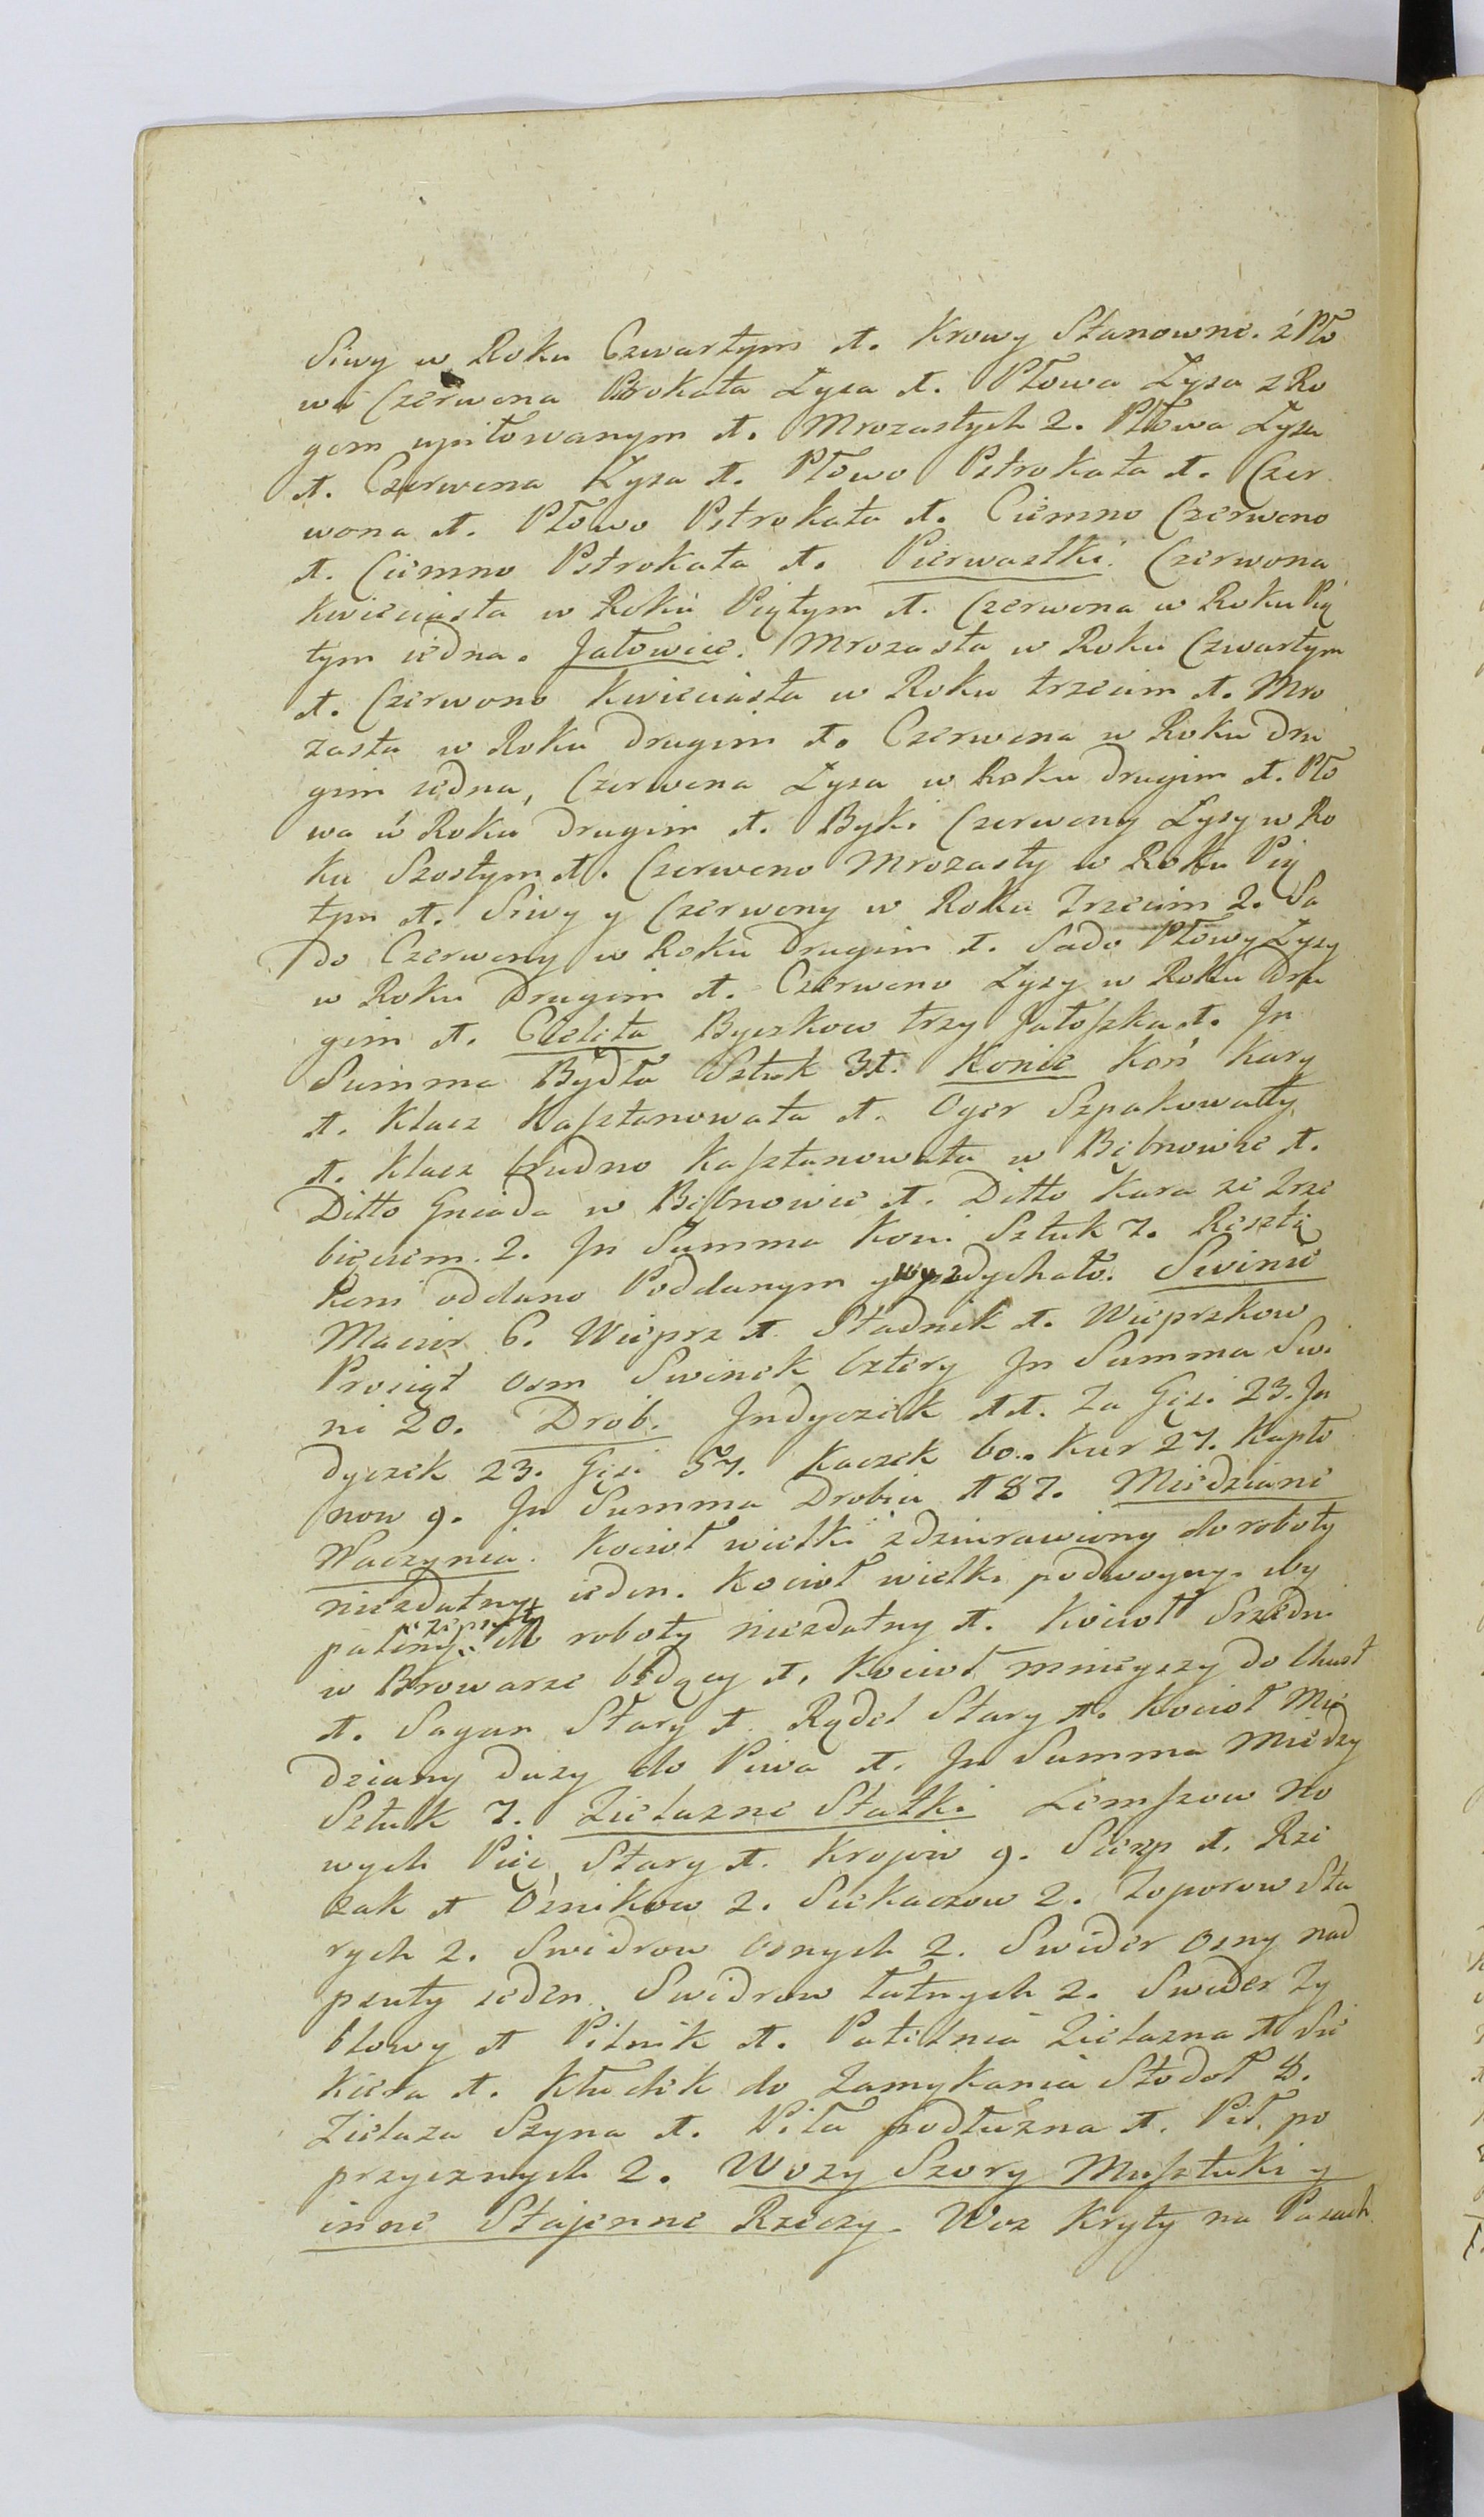 Siwy w Roku Czwartym 1. Krowy Stanowne. z Pło
wa Czerwona Pstrokata Łysa 1. Płowa Łysa z Ro
gem upiłowanym 1. Mrozastych 2. Płowa Łysa
1. Czerwona Łysa 1. Płowo Pstrokata 1. Czer
wona 1. Płowo Pstrokata 1. Ciemno Czerwono
1. Ciemno Pstrokata 1. Pierwastki. Czerwona
kwieciasta w Roku Piątym 1. Czerwona w Roku Pią
tym iedna. Jałowice. Mrozasta w Roku Czwartym
1. Czerwono kwieciasta w Roku trzecim 1. Mro
zasta w Roku Drugim 1. Czerwona w Roku Dru
gim iedna, Czerwona Łysa w Roku Drugim 1. Pło
wa w Roku Drugim 1. Byki Czerwony Łysy w Ro
ku Szostym 1. Czerwono Mrozasty w Roku Pią
tym 1. Siwy y Czerwony w Roku Trzecim 2. Sa
do Czerwony w Roku Drugim 1. Sado Płowy Łysy
w Roku Drugim 1. Czerwono Łysy w Roku Dru
gim 1. Cielęta Byczkow trzy Jałoszka 1. Jn
Summa Bydła Sztuk 31. Konie Koń Kary
1. Klacz Kasztanowata 1. Ogier Szpakowaty
1. Klacz brudno kasztanowata w Bębnowie 1.
Ditto Gniada w Bębnowie 1. Ditto Kara ze Zrze
bięciem. 2. Jn Summa Koni Sztuk 7. Resztę
Koni oddano Poddanym y wyzdychało. Swinie
Macior 6. Wieprz 1. Stadnik 1. Wieprzkow
Prosiąt osm Swinek cztery Jn Summa Swi
ni 20. Drob. Jndyczek 11. Za Gęsi 23. Jn
dyczek 23. Gęsi 57. Kaczek 60. Kur 27. Kapło
now 9. Jn Summa Drobiu 187. Miedziane
Naczynia. Kocioł wielki zdziurawiony do roboty
niezdatny ieden. Kocioł wielki podwoyny. wy
palony zepsuty do roboty niezdatny 1. Kocioł Srzedni
w Browarze będący 1. Kocioł mnieyszy do Chust
1. Sagan Stary 1. Rądel Stary 1. Kocioł Mie
dziany duży do Piwa 1. Jn Summa Miedzy
Sztuk 7. Zielazne Statki Lemszow No
wych Pięć, Stary 1. Krojow 9. Sierp 1. Rze
zak 1 Osnikow 2. Siekaczow 2. Toporow Sta
rych 2. Swidrow osnych 2. Swider Osny nad
psuty ieden. Swidrow łatnych 2. Swider Zy
blowy 1 Pilnik 1. Patelnia Zielazna 1 Sie
kiera 1. Kłudek do Zamykania Stodoł 8.
Zielaza Szyna 1. Piła podłużna 1. Pił po
przycznych 2. Wozy Szory Musztuki y
inne Stajenne Rzeczy. Woz Kryty na Pasach